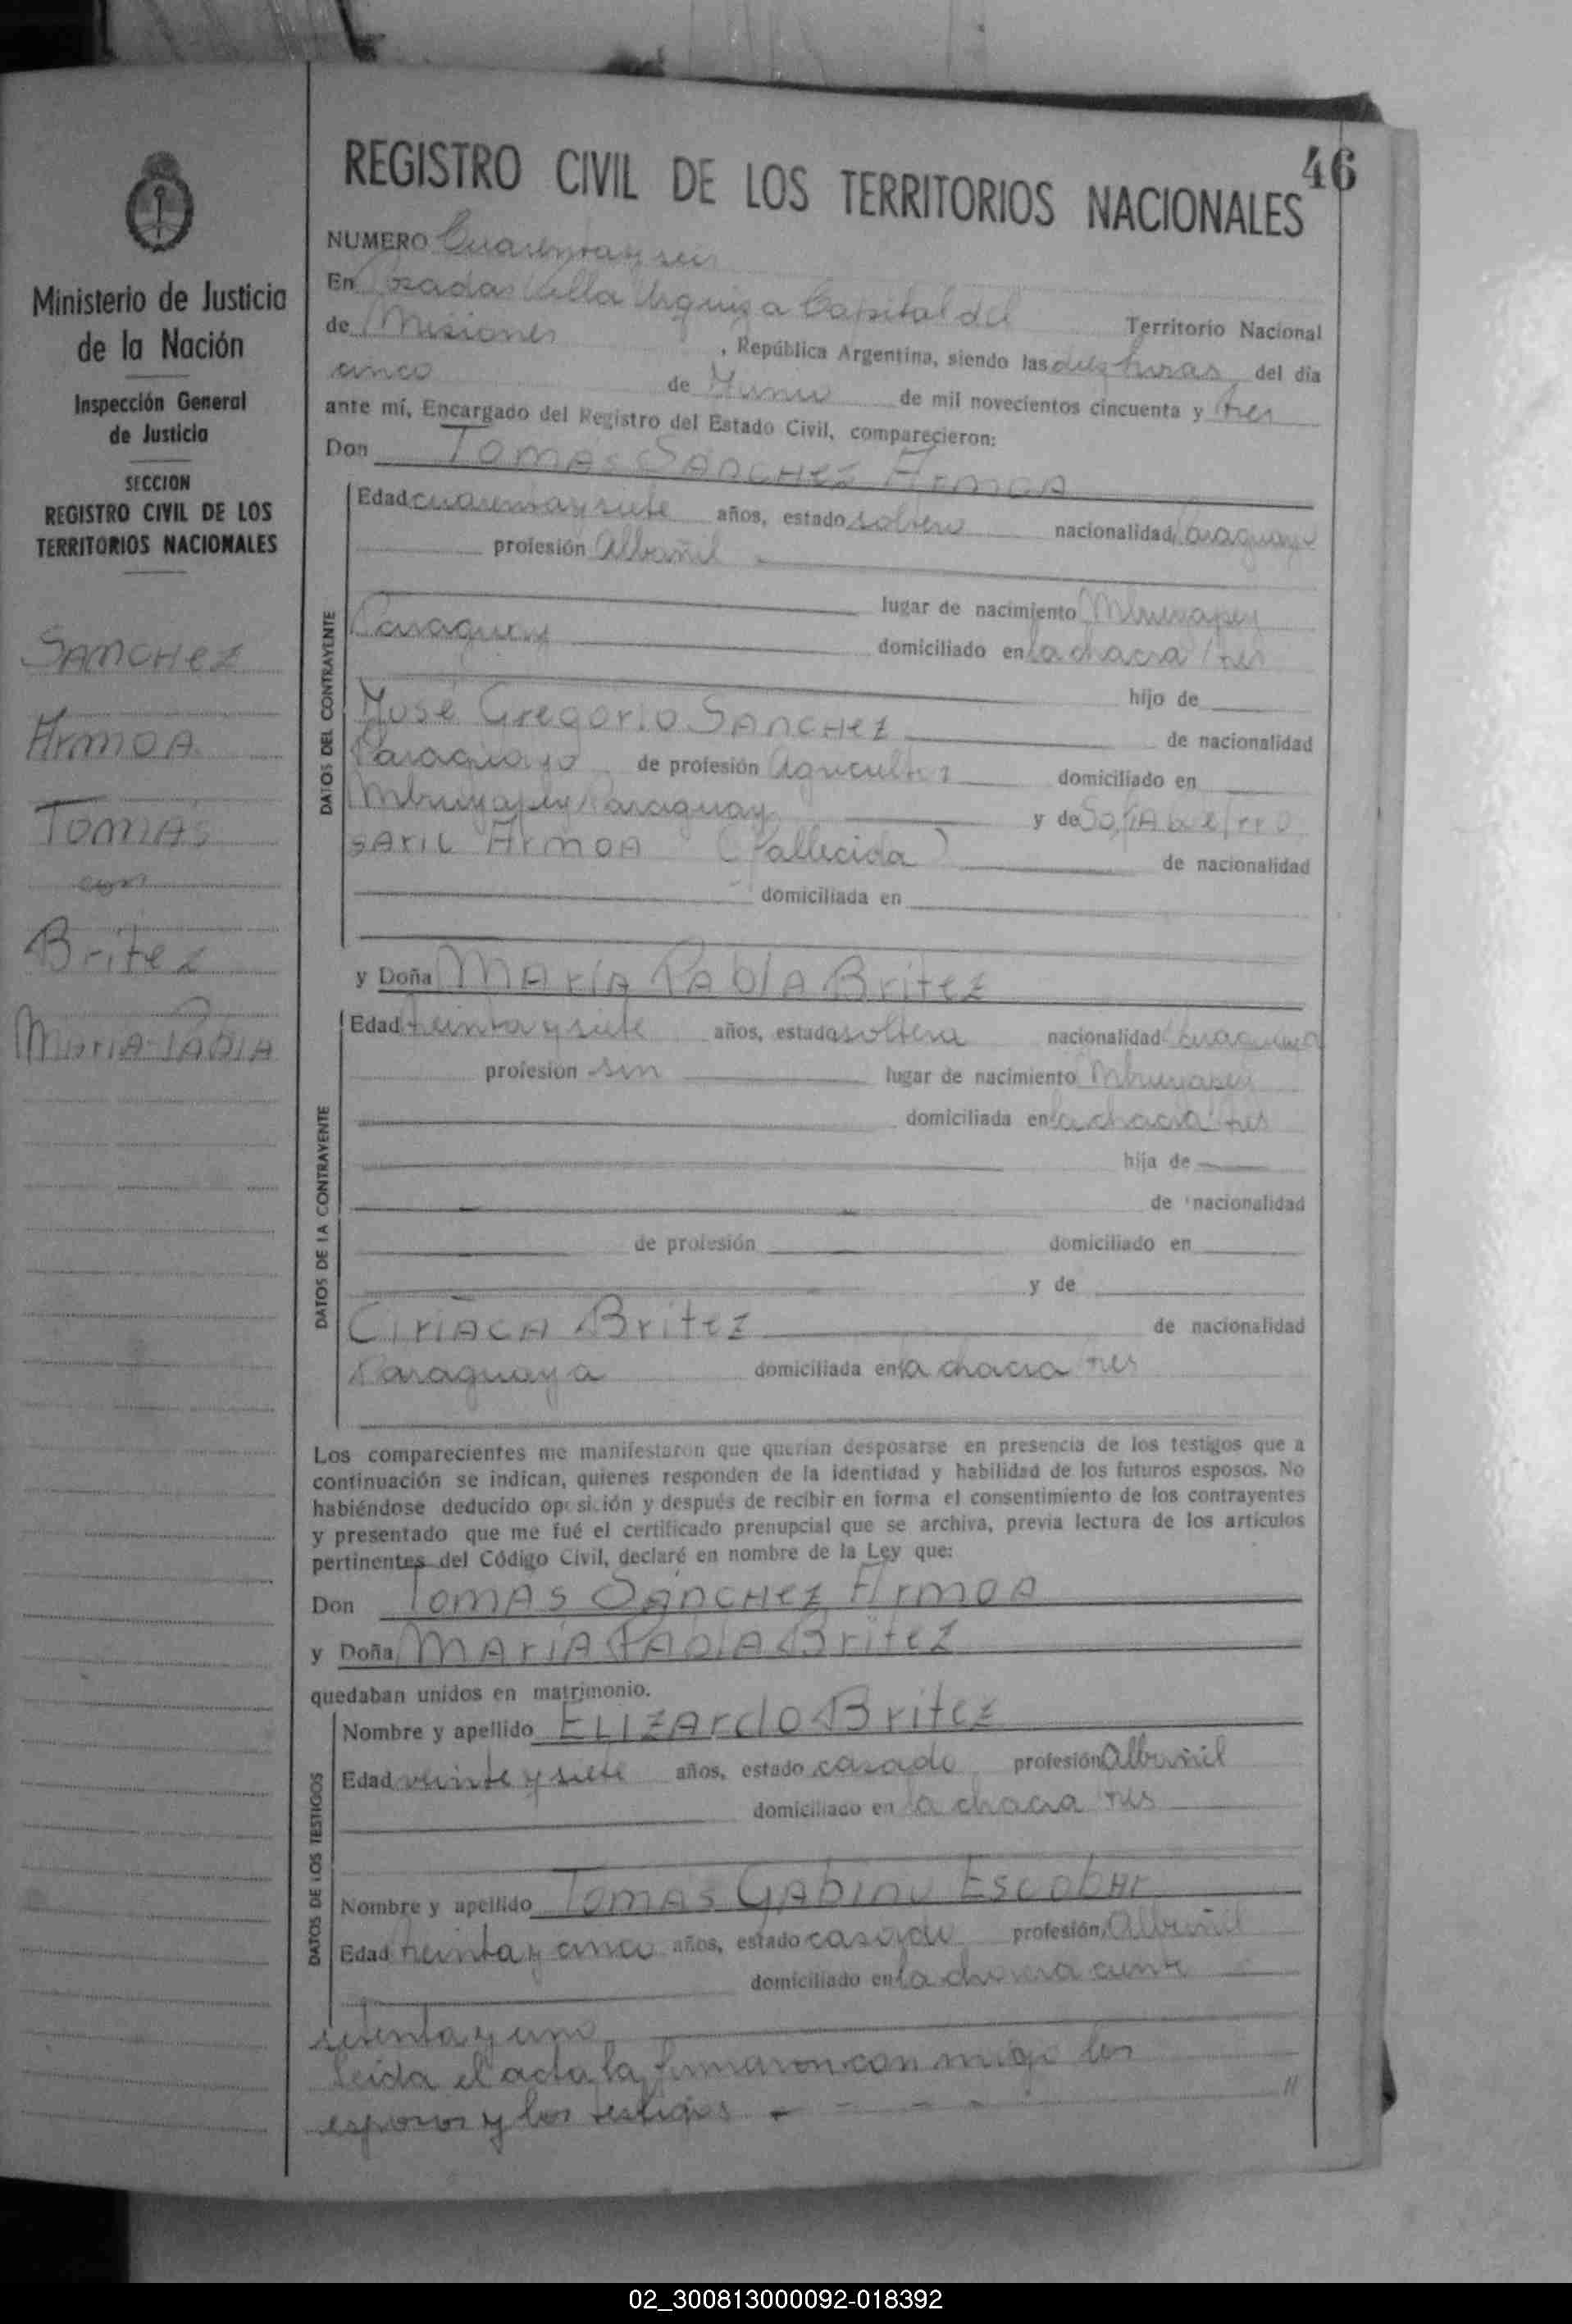 46
REGISTRO CIVIL DE LOS TERRITORIOS NACIONALES
NUMERO Cuarenta y seis
En Posadas Villa Urquiza Capital del Territorio Nacional
de Misiones, República Argentina, siendo las diez horas del día
cinco de Junio de mil novecientos cincuenta y tres
ante mí, Encargado del Registro del Estado Civil, comparecieron:
Don TOMAS SANCHEZ ARMOA
DATOS DEL CONTRAYENTE
Edad cuarenta y siete años, estado soltero nacionalidad Paraguayo
profesión Albañil
lugar de nacimiento Mbuyapey
Paraguay domiciliado en la chacra tres
hijo de
José Gregorio SANCHEZ de nacionalidad
Paraguayo de profesión Agricultor domiciliado en
Mbuyapey Paraguay y de
ARMOA (Fallecida) de nacionalidad
domiciliada en
y Doña MARÍA PABLA BRITEZ
DATOS DE LA CONTRAYENTE
Edad treinta y siete años, estado soltera nacionalidad Paraguaya
profesión sin lugar de nacimiento Mbuyapey
domiciliada en la chacra tres
hija de
de nacionalidad
de profesión domiciliado en
y de
CIRIACA BRITEZ de nacionalidad
Paraguaya domiciliada en la chacra tres
Los comparecientes me manifestaron que querían desposarse en presencia de los testigos que a
continuación se indican, quienes responden de la identidad y habilidad de los futuros esposos. No
habiéndose deducido oposición y después de recibir en forma el consentimiento de los contrayentes
y presentado que me fué el certificado prenupcial que se archiva, previa lectura de los artículos
pertinentes del Código Civil, declaré en nombre de la Ley que:
Don TOMAS SANCHEZ ARMOA
y Doña MARÍA PABLA BRITEZ
quedaban unidos en matrimonio.
DATOS DE LOS TESTIGOS
Nombre y apellido ELIZARdO BRITEZ
Edad veinte y siete años, estado casado profesión Albañil
domiciliado en la chacra tres
Nombre y apellido TOMAS GABINO ESCOBAR
Edad treinta y cinco años, estado casado profesión Albañil
domiciliado en la chacra ciento
setenta y uno
Leída el acta la firmaron con migo los
esposos y los testigos
Ministerio de Justicia
de la Nación
Inspección General
de Justicia
SECCION
REGISTRO CIVIL DE LOS
TERRITORIOS NACIONALES
SANCHEZ
ARMOA
TOMAS
con
BRITEZ
MARIA PABLA
02_300813000092-018392